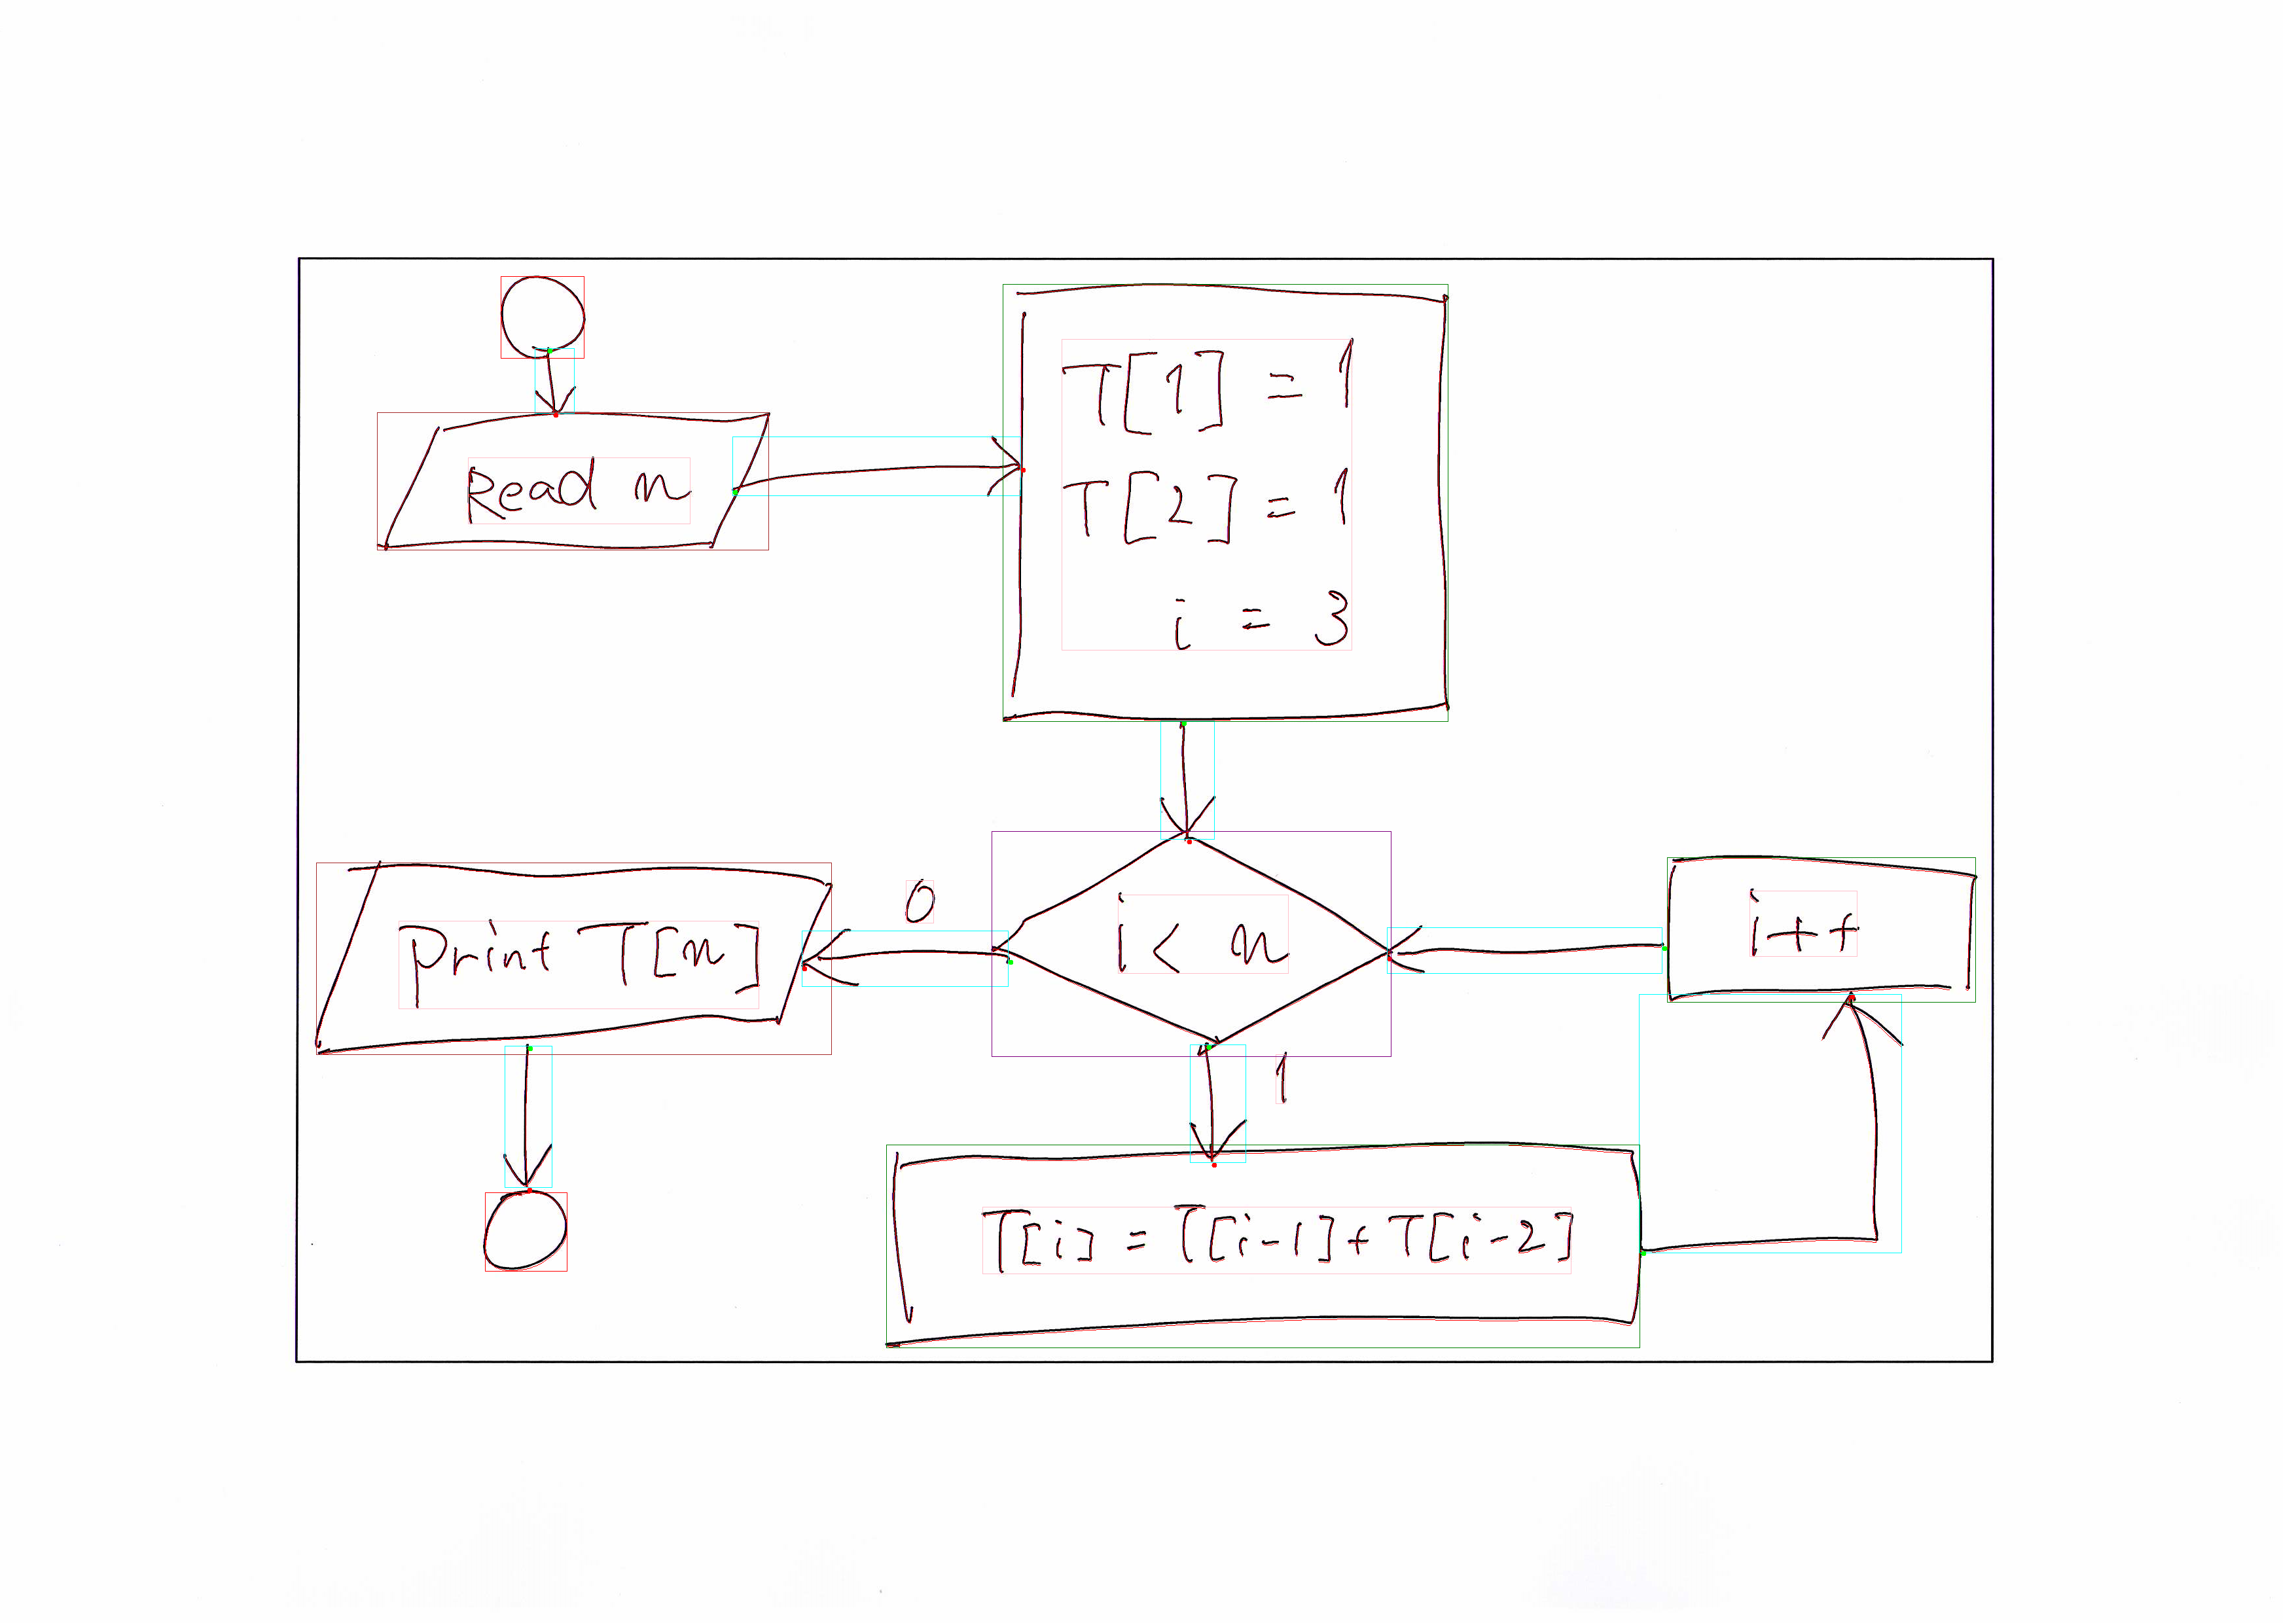 Read n
T[1] = 1
T[2] = 1
i = 3
0
print T[n]
i < n
i++
1
T[i] = T[i-1] + T[i-2]